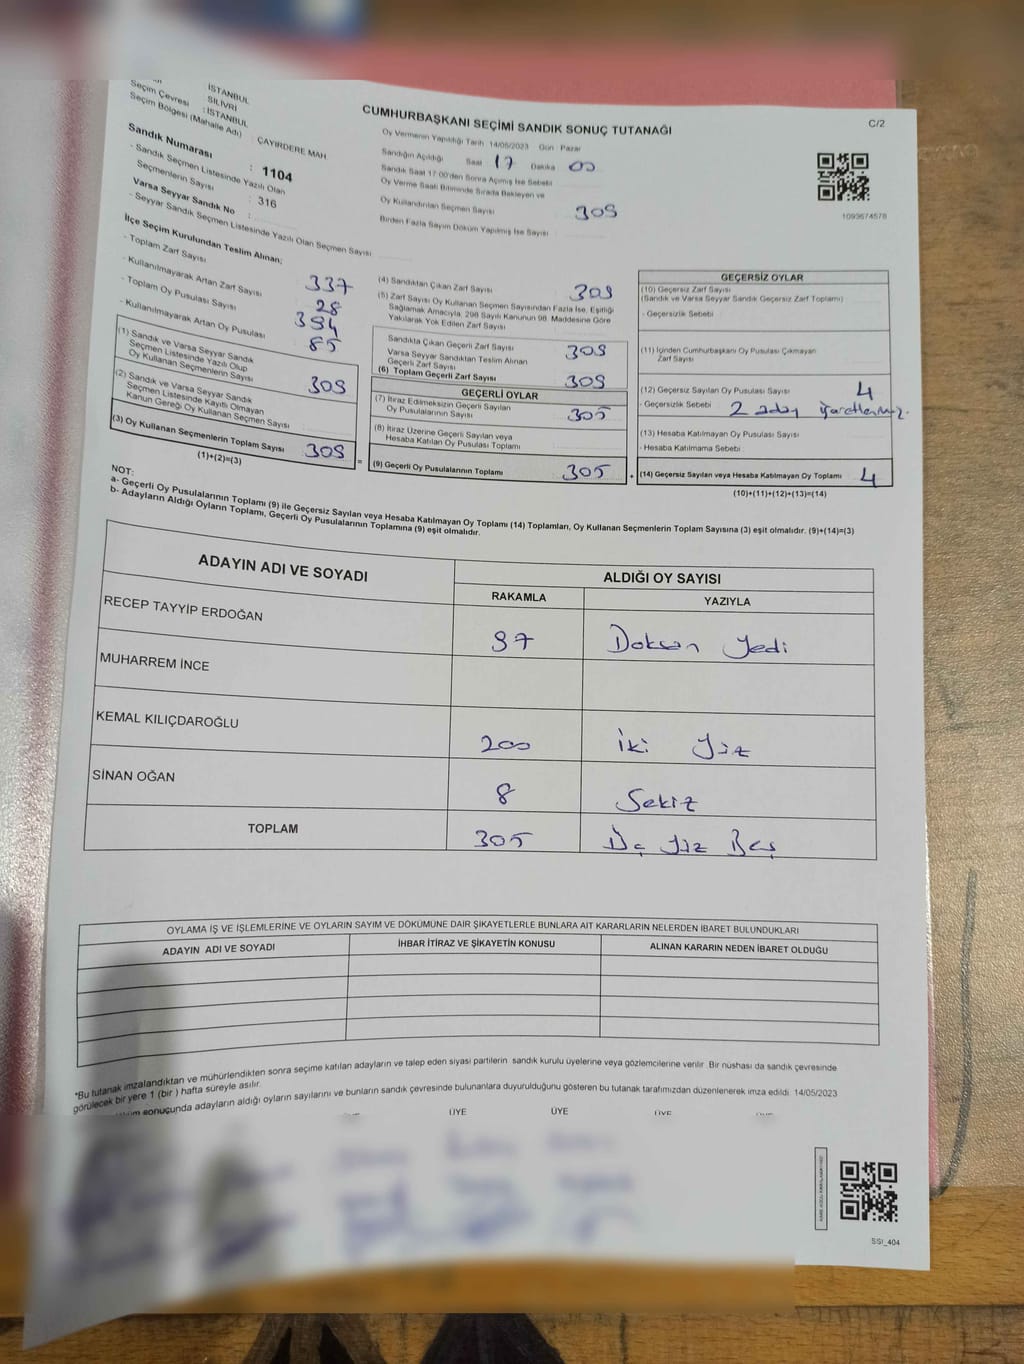 İSTANBUL
Seçim Çevresi : SİLİVRİ
Seçim Bölgesi (Mahalle Adı) : İSTANBUL
ÇAYIRDERE MAH
CUMHURBAŞKANI SEÇİMİ SANDIK SONUÇ TUTANAĞI
C/2
Oy Vermenin Yapıldığı Tarih 14/05/2023 Gün : Pazar
Sandığın Açıldığı Saat 17 Dakika 00
Sandık Saat 17:00'den Sonra Açılmış İse Sebebi
Oy Verme Saati Bitiminde Sırada Bekleyen ve
Oy Kullandırılan Seçmen Sayısı 309
Birden Fazla Sayım Döküm Yapılmış İse Sayısı
1093674578
Sandık Numarası : 1104
- Sandık Seçmen Listesinde Yazılı Olan
Seçmenlerin Sayısı : 316
Varsa Seyyar Sandık No :
- Seyyar Sandık Seçmen Listesinde Yazılı Olan Seçmen Sayısı
İlçe Seçim Kurulundan Teslim Alınan;
- Toplam Zarf Sayısı 337
- Kullanılmayarak Artan Zarf Sayısı 28
- Toplam Oy Pusulası Sayısı 394
- Kullanılmayarak Artan Oy Pusulası 85
(1) Sandık ve Varsa Seyyar Sandık
Seçmen Listesinde Yazılı Olup
Oy Kullanan Seçmenlerin Sayısı 309
(2) Sandık ve Varsa Seyyar Sandık
Seçmen Listesinde Kayıtlı Olmayan
Kanun Gereği Oy Kullanan Seçmen Sayısı
(3) Oy Kullanan Seçmenlerin Toplam Sayısı 309
(1)+(2)=(3)
(4) Sandıktan Çıkan Zarf Sayısı 309
(5) Zarf Sayısı Oy Kullanan Seçmen Sayısından Fazla İse, Eşitliği
Sağlamak Amacıyla, 298 Sayılı Kanunun 98. Maddesine Göre
Yakılarak Yok Edilen Zarf Sayısı
Sandıkta Çıkan Geçerli Zarf Sayısı 309
Varsa Seyyar Sandıktan Teslim Alınan
Geçerli Zarf Sayısı
(6) Toplam Geçerli Zarf Sayısı 309
GEÇERLİ OYLAR
(7) İtiraz Edilmeksizin Geçerli Sayılan
Oy Pusulalarının Sayısı 305
(8) İtiraz Üzerine Geçerli Sayılan veya
Hesaba Katılan Oy Pusulası Toplamı
(9) Geçerli Oy Pusulalarının Toplamı 305
GEÇERSİZ OYLAR
(10) Geçersiz Zarf Sayısı
(Sandık ve Varsa Seyyar Sandık Geçersiz Zarf Toplamı)
- Geçersizlik Sebebi :
(11) İçinden Cumhurbaşkanı Oy Pusulası Çıkmayan
Zarf Sayısı
(12) Geçersiz Sayılan Oy Pusulası Sayısı 4
- Geçersizlik Sebebi : 2 aday
(13) Hesaba Katılmayan Oy Pusulası Sayısı
- Hesaba Katılmama Sebebi :
(14) Geçersiz Sayılan veya Hesaba Katılmayan Oy Toplamı 4
(10)+(11)+(12)+(13)=(14)
NOT:
a- Geçerli Oy Pusulalarının Toplamı (9) ile Geçersiz Sayılan veya Hesaba Katılmayan Oy Toplamı (14) Toplamları, Oy Kullanan Seçmenlerin Toplam Sayısına (3) eşit olmalıdır. (9)+(14)=(3)
b- Adayların Aldığı Oyların Toplamı, Geçerli Oy Pusulalarının Toplamına (9) eşit olmalıdır.
ADAYIN ADI VE SOYADI
ALDIĞI OY SAYISI
RAKAMLA YAZIYLA
RECEP TAYYİP ERDOĞAN 97 Doksan Yedi
MUHARREM İNCE
KEMAL KILIÇDAROĞLU 200 İki Yüz
SİNAN OĞAN 8 Sekiz
TOPLAM 305 Üç Yüz Beş
OYLAMA İŞ VE İŞLEMLERİNE VE OYLARIN SAYIM VE DÖKÜMÜNE DAİR ŞİKAYETLERLE BUNLARA AİT KARARLARIN NELERDEN İBARET BULUNDUKLARI
ADAYIN ADI VE SOYADI İHBAR İTİRAZ VE ŞİKAYETİN KONUSU ALINAN KARARIN NEDEN İBARET OLDUĞU
*Bu tutanak imzalandıktan ve mühürlendikten sonra seçime katılan adayların ve talep eden siyasi partilerin sandık kurulu üyelerine veya gözlemcilerine verilir. Bir nüshası da sandık çevresinde
görülecek bir yere 1 (bir ) hafta süreyle asılır.
sonuçunda adayların aldığı oyların sayılarını ve bunların sandık çevresinde bulunanlara duyurulduğunu gösteren bu tutanak tarafımızdan düzenlenerek imza edildi. 14/05/2023
ÜYE ÜYE ÜYE
SSI_404